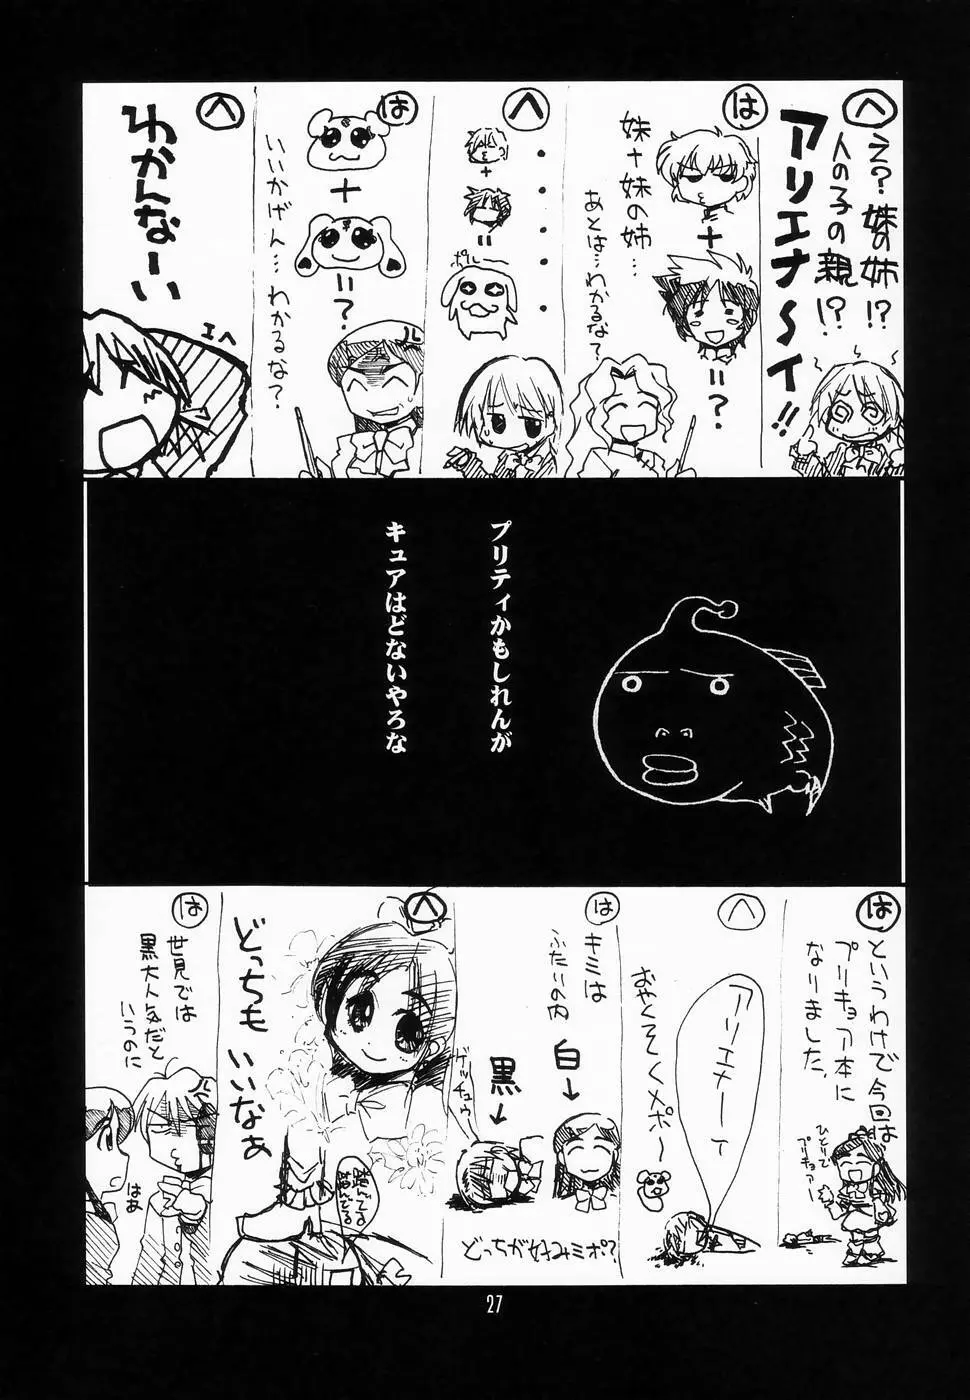 へ
え?妹の姉!?
人の子の親!?
アリエナ〜イ!!
は
+
=?
妹+妹の姉…
あとは…わかるな?
へ
・・・・・・
+
=
ポルー
は
+
=?
いいかげん…わかるな?
へ
わかんなーい
エヘ
プリティかもしれんが
キュアはどないやろな
は
というわけで今回は
プリキュア本に
なりました。
ひとりで
プリキュアー
へ
アリエナーイ
おやくそくメポ〜
は
キミは
ふたりの内
白→
黒→
ゲッチュウ
どっちが好みミポ?
へ
どっちもいいなぁ
踏んでる
踏んでる
は
世見では
黒大人気だと
いうのに
はぁ
27